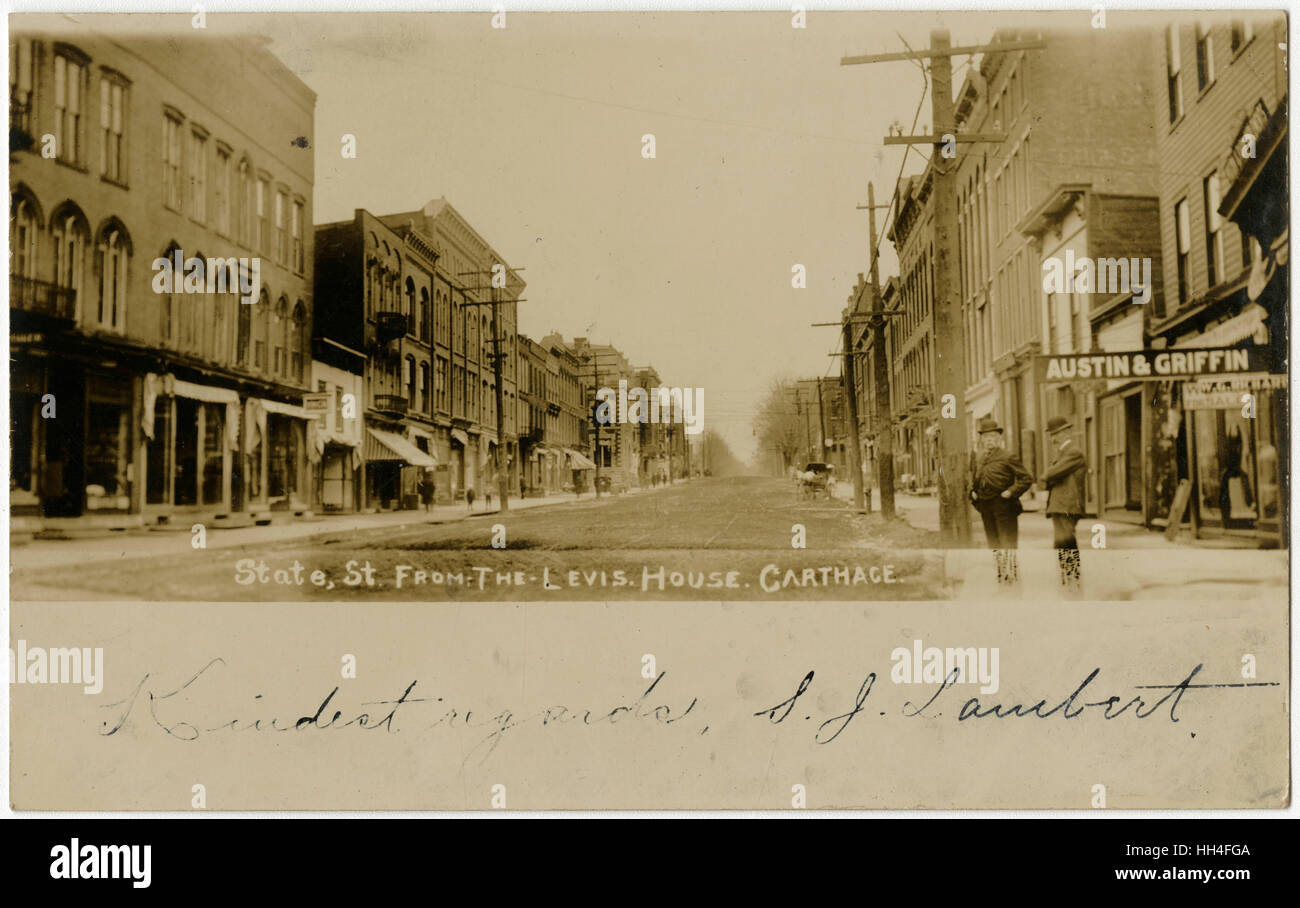 AUSTIN & GRIFFIN
State, St. From-The-Levis. House. Carthage.
Kindest regards, S. J. Lambert.
alamy
alamy
Image ID: HH4FGA
www.alamy.com